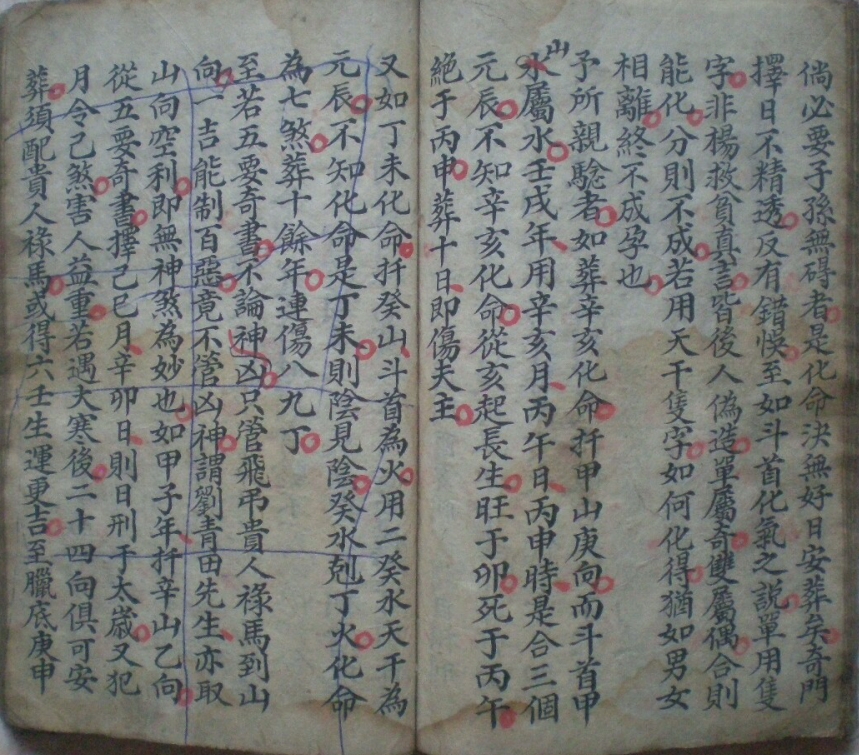 倘必要子孫無碍者是化命決無好日安葬矣奇門
擇日不精透反有錯悞至如斗首化氣之説單用隻
字非楊救貧真言皆後人偽造單屬奇雙屬偶合則
能化分則不成若用天干隻字如何化得猶如男女
相離終不成孕也
予所親騐者如葬辛亥化命扦甲山庚向而斗首甲
山水屬水壬戌年用辛亥月丙午日丙申時是合三個
元辰不知辛亥化命從亥起長生旺于卯死于丙午
絕于丙申葬十日即傷夫主
又如丁未化命扦癸山斗首為火用二癸水天干為
元辰不知化命是丁未則陰見陰癸水剋丁火化命
為七煞葬十餘年連傷八九丁
至若五要奇書不論神凶只管飛弔貴人祿馬到山
向一吉能制百惡竟不管凶神謂劉青田先生亦取
山向空利即無神煞為妙也如甲子年扦辛山乙向
從五要奇書擇己巳月辛卯日則日刑于太歲又犯
月令己煞害人益重若遇大寒後二十四向俱可安
葬須配貴人祿馬或得六壬生運更吉至臘底庚申